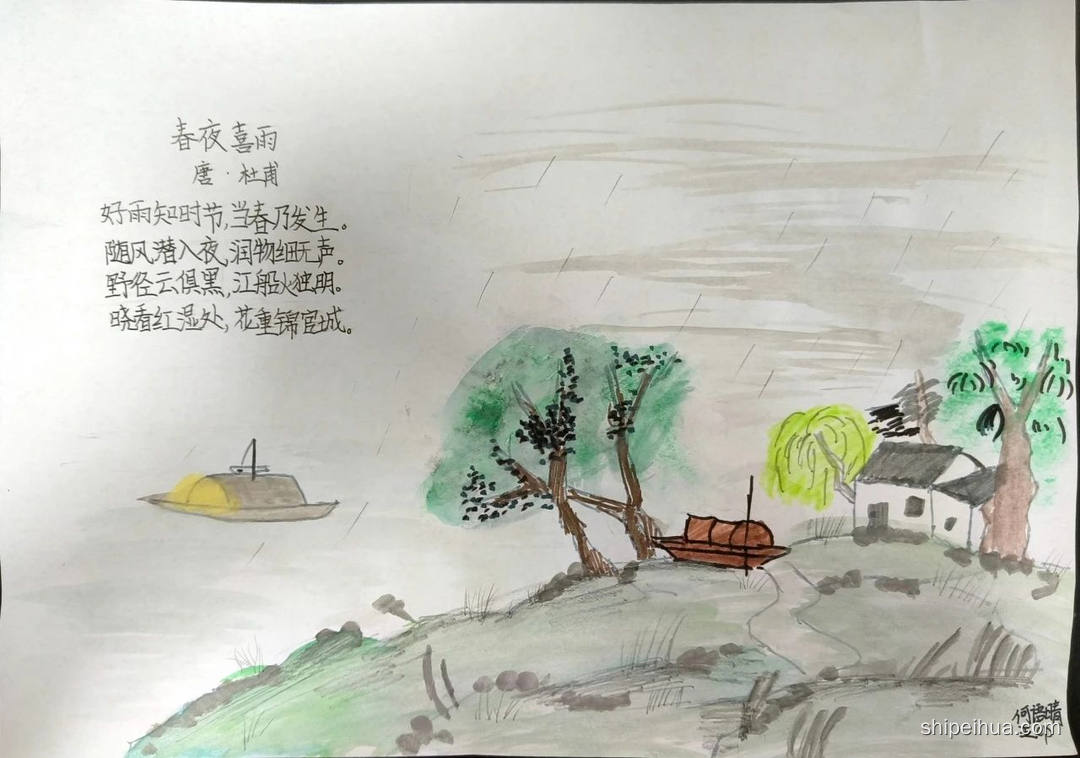 春夜喜雨
唐·杜甫
好雨知时节,当春乃发生。
随风潜入夜,润物细无声。
野径云俱黑,江船火独明。
晓看红湿处,花重锦官城。
何语晴
shipeihua.com